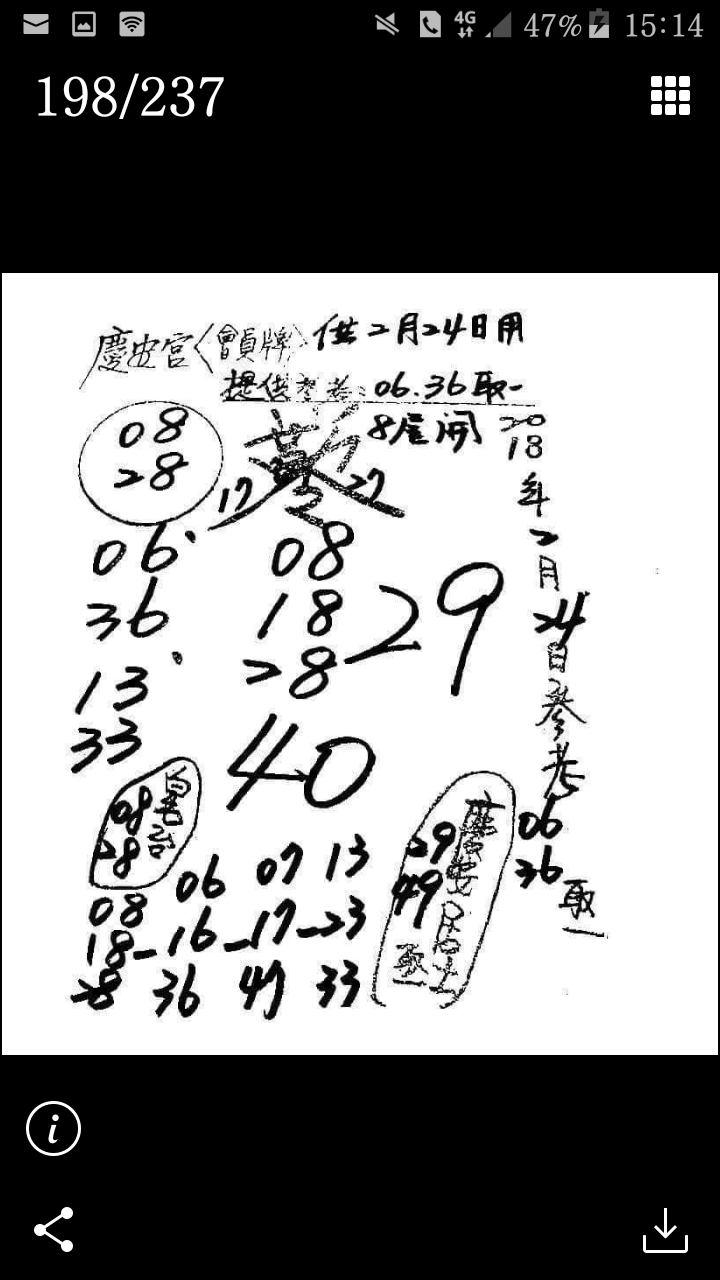 4G 47% 15:14
198/237
慶安宮〈會員牌〉供2月24日用
提供參考：06.36取一
08
28
8尾開
2018年2月24日參考06 36取一
17 27
06 08
36 18
29
13 28
33
40
08
28
29
49
取一
06 07 13
08
18-16-17-23
28 36 47 33